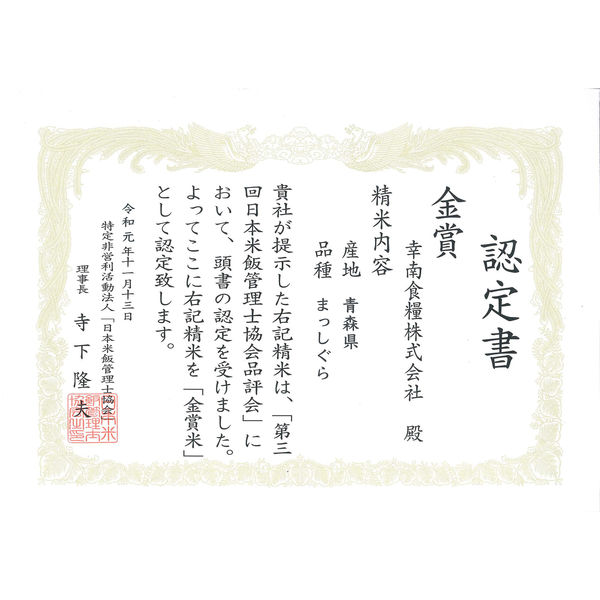 認定書
金賞
幸南食糧株式会社 殿
精米内容
産地 青森県
品種 まっしぐら
貴社が提示した右記精米は、「第三
回日本米飯管理士協会品評会」に
おいて、頭書の認定を受けました。
よってここに右記精米を「金賞米」
として認定致します。
令和元年十一月十三日
特定非営利活動法人「日本米飯管理士協会」
理事長 寺下隆夫